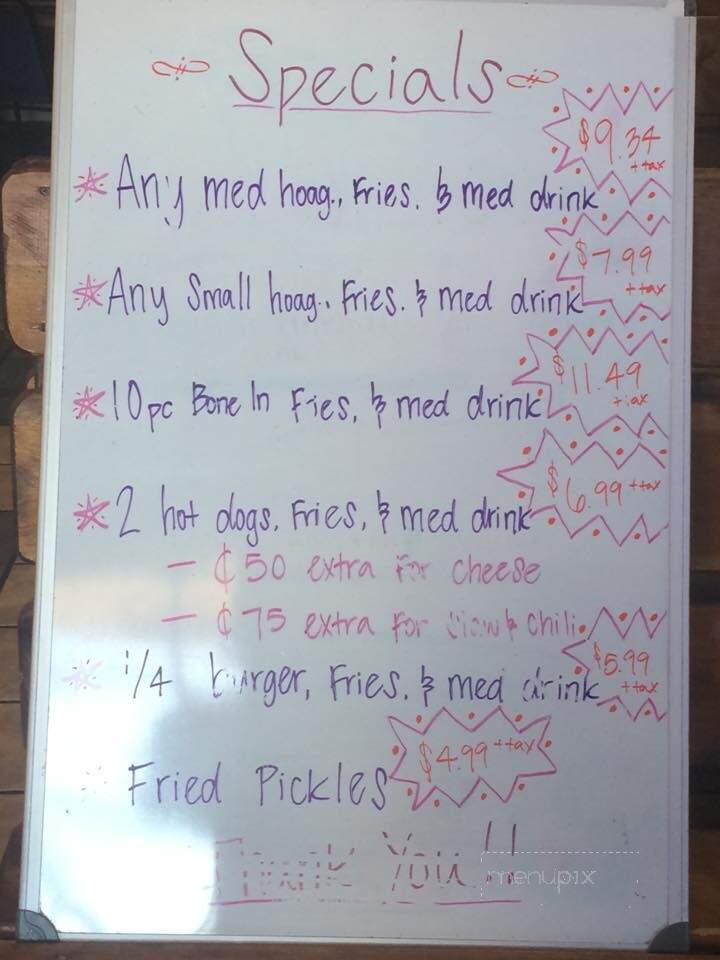 Specials
$9.34
+tax
Any med hoag., Fries. & med drink
$7.99
+tax
Any Small hoag., Fries. & med drink
$11.49
+tax
10pc Bone In Fries, & med drink
$6.99 +tax
2 hot dogs, Fries, & med drink
- ¢50 extra for cheese
- ¢75 extra for slaw & chili.
$5.99
+tax
1/4 burger, Fries. & med drink
$4.99 +tax
Fried Pickles
Thank You!!
menupix